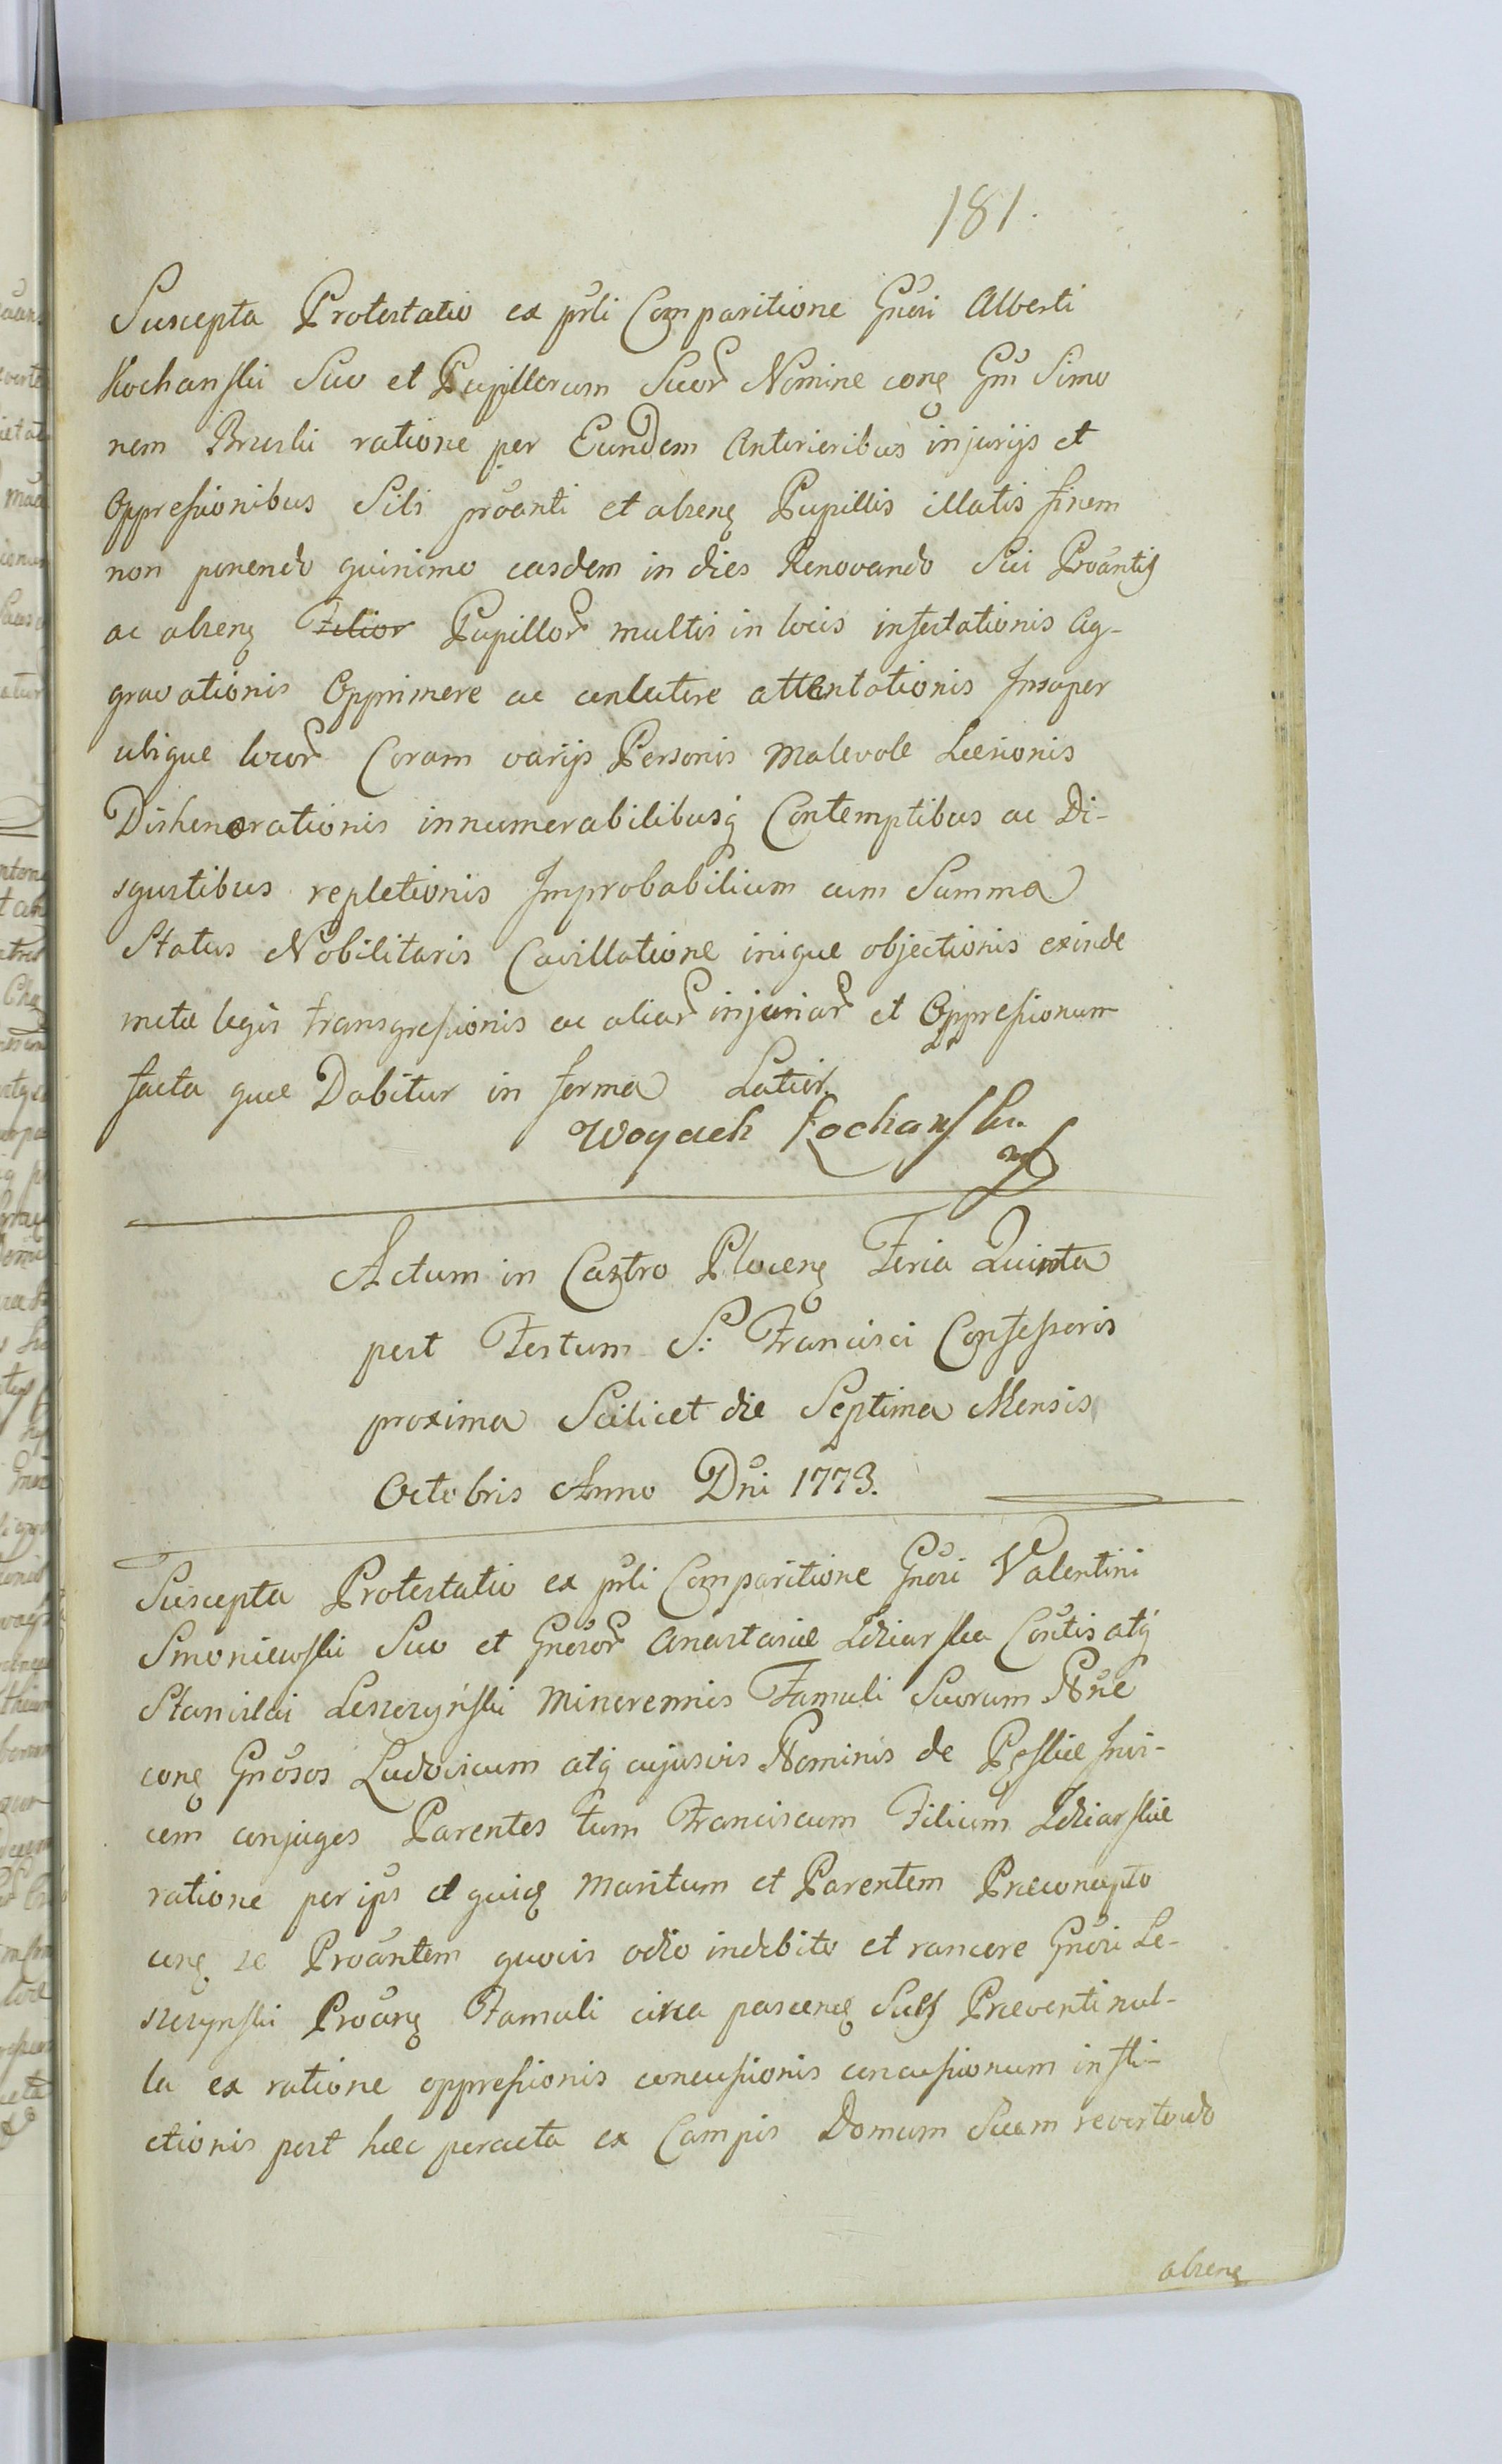 181.
Suscepta Protestatio ex prli Comparitione Gnosi Alberti
Kochanski Suo et Pupillorum Suor Nomine cong Gm Simo
nem Bruski ratione per Eundem Anterioribus injurijs et
Oppressionibus Sibi proanti et abseng Pupillis illatis finem
non ponendo quinimo easdem in dies Renovando Sui Proantis
ac abseng Filior Pupillor multis in locis infestationis Ag-
gravationis Opprimere ac attentationis Insuper
ubique locor Coram varijs Personis malevole Læsionis
Dishonorationis innumerabilibusq Contemptibus ac Di-
sgustibus repletionis Improbabilium cum Summa
Status Nobilitaris Cavillatione inique objectionis exinde
metæ legis transgressionis ac aliar injuriar et Oppressionum
facta quæ Dabitur in forma Latior.
Woyciech Kochanski
mp
Actum in Castro Ploceng Feria Quinta
post Festum S: Francisci Confessoris
proxima Scilicet die Septima Mensis
Octobris Anno Dni 1773.
Suscepta Protestatio ex prli Comparitione Gnosi Valentini
Smoniewski Suo et Gnosor Anastasiæ Idziarska Contis atq
Stanislai Leszczynski minorennis Famuli Suorum Nne
cong Gnosos Ludovicum atq cujusvis Nominis de Invi-
cem conjuges Parentes tum Franciscum Filium Idziarskie
ratione per ips et quieq Maritum et Parentem Præconcepto
cong se Proantem quovis odio indebito et rancore Gnosi Le-
szczynski Proang Famuli circa pasceneg Præventi nul-
la ex ratione oppressionis concussionis concussionum infli-
ctionis post hæc peracta ex Campis Domum Suam revertendo
abseng